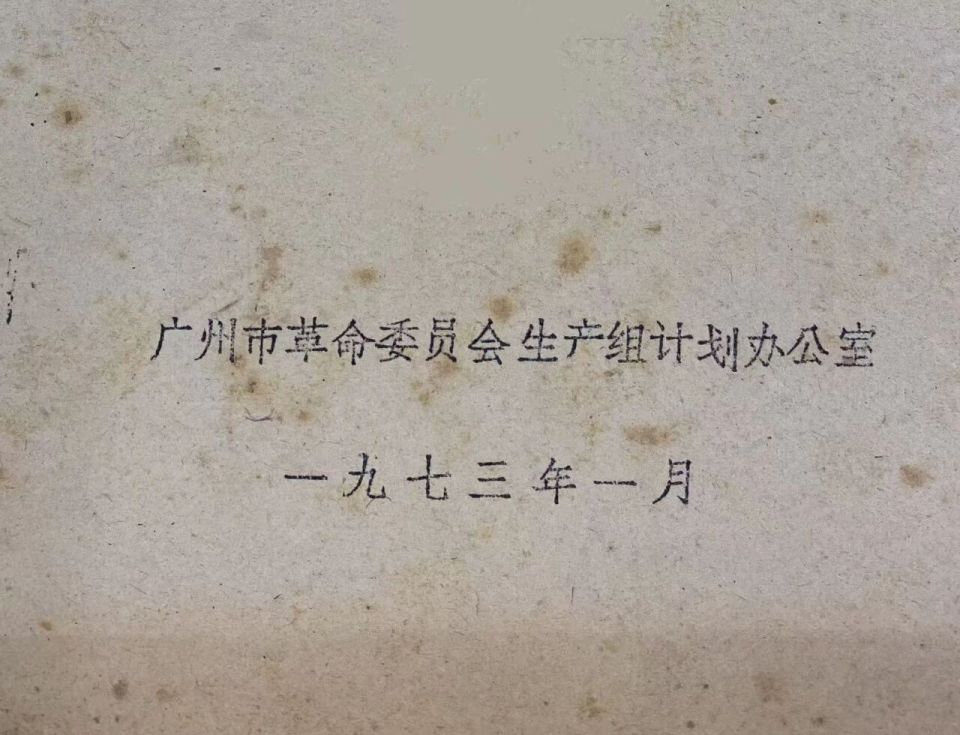 广州市革命委员会生产组计划办公室
一九七三年一月